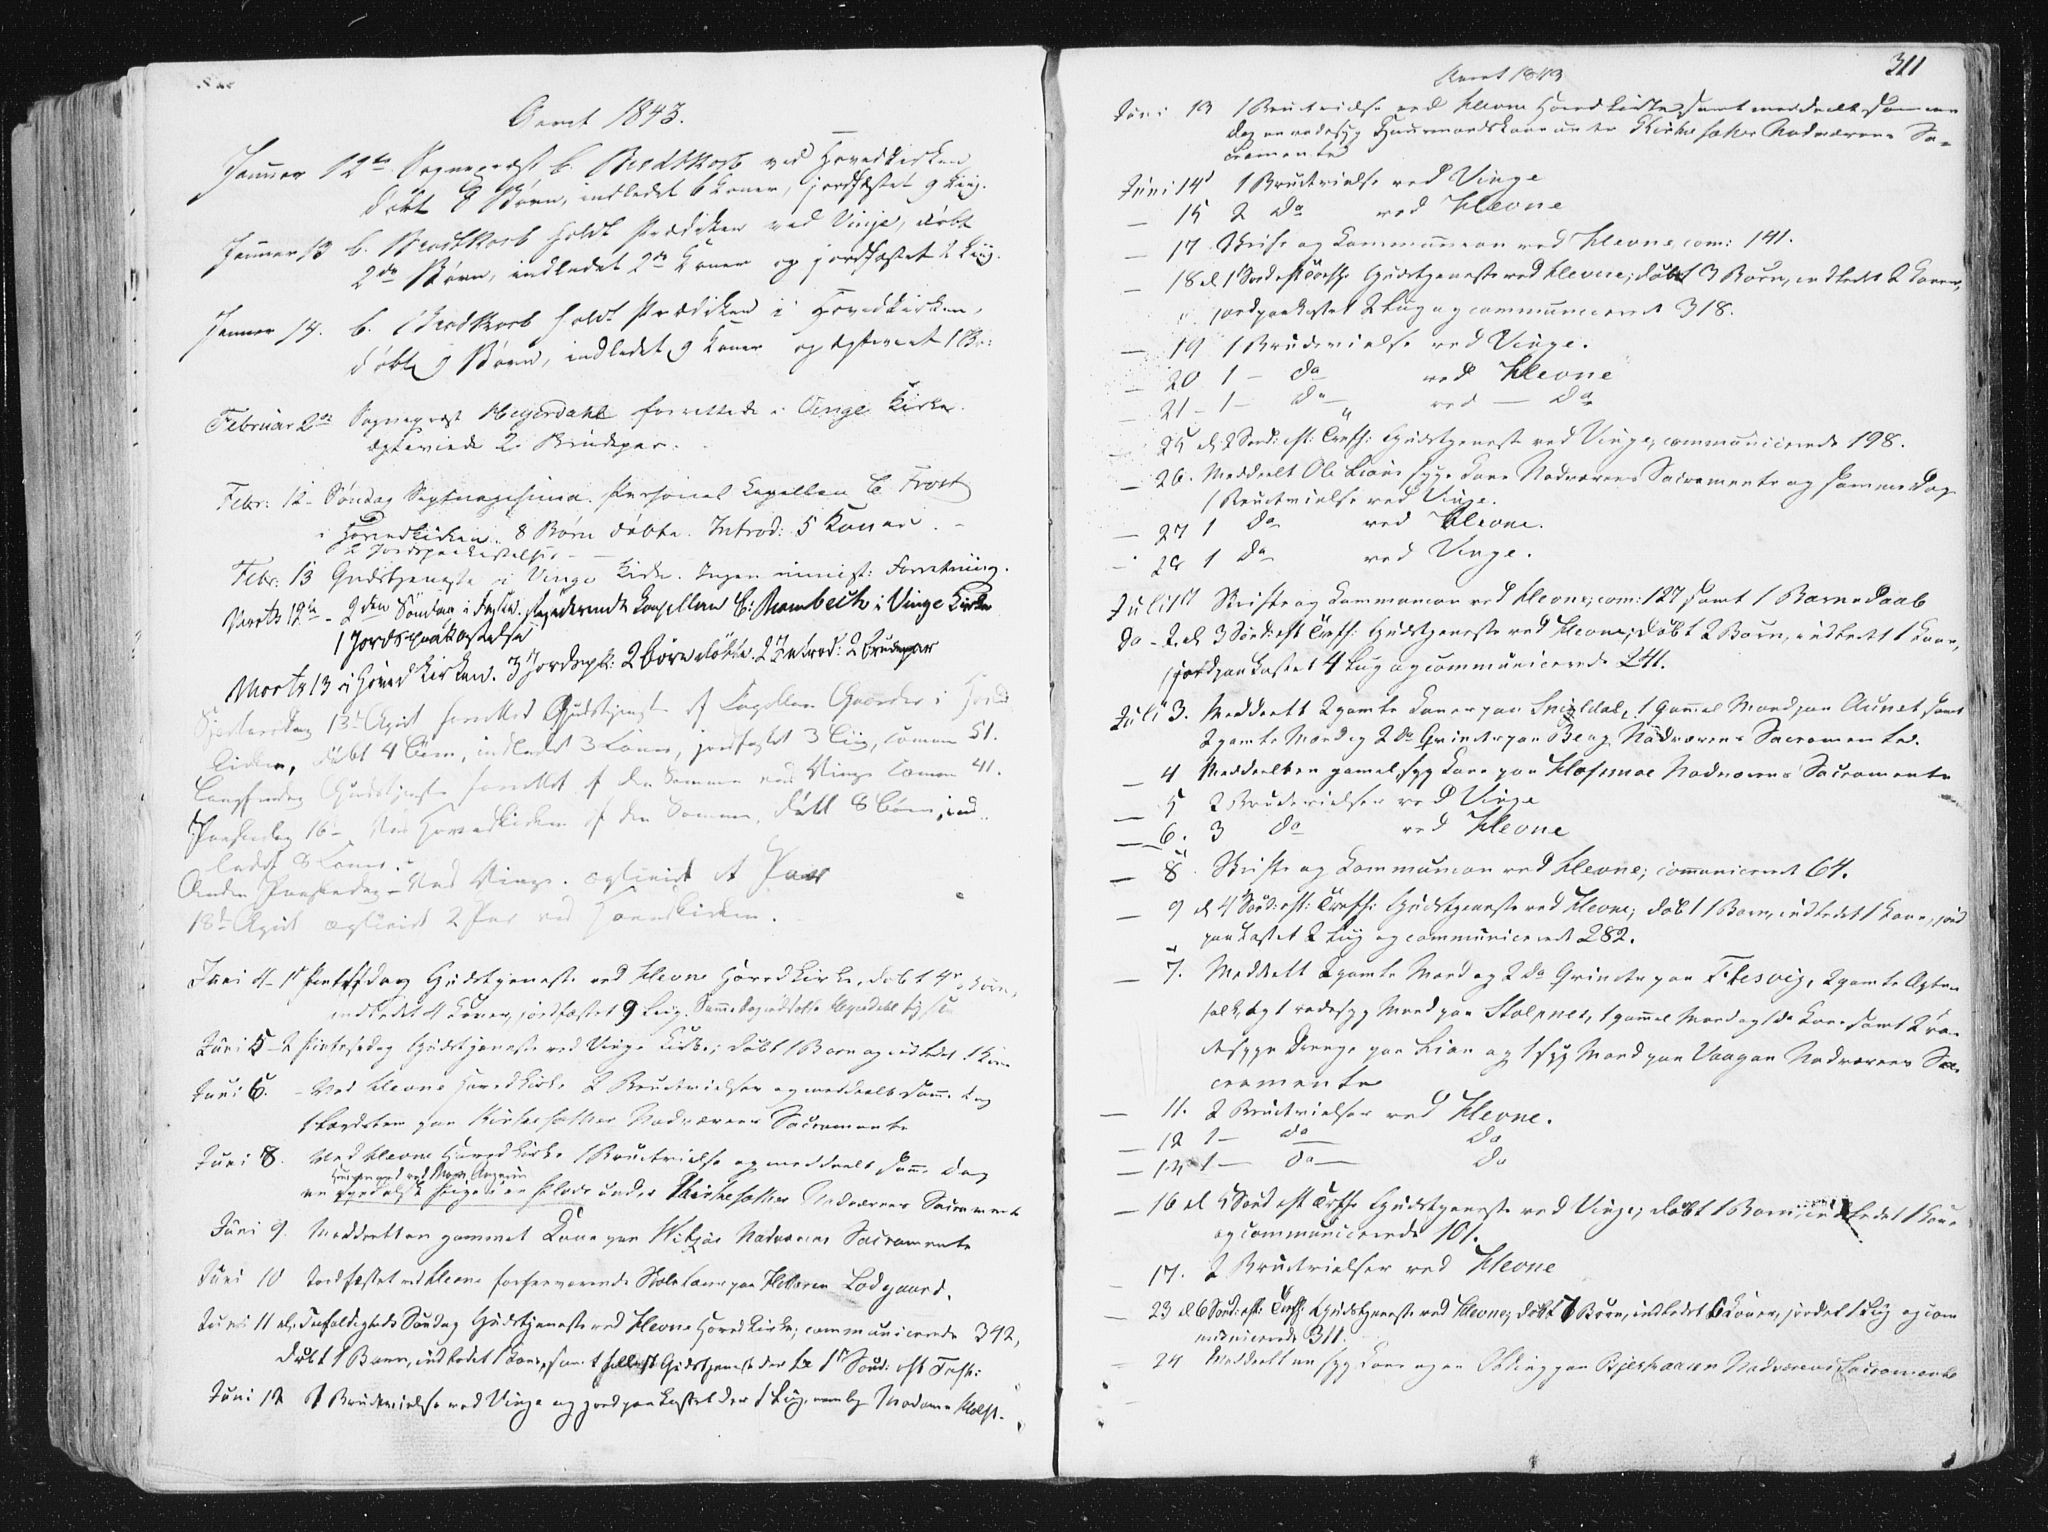 Aaret 1843.
Januar 12te Sognepræst C. Brodtkorb ved Hovedkirken
døbt 8 Børn, indledet 6 Koner, jordfæstet 9 Liig.
Januar 13 C. Brodtkorb holdt Prædiken ved Vinje, døbt
2de Børn, indledet 2de Koner og jordfæstet 2 Liig.
Januar 14. C. Brodtkorb holdt Prædiken i Hovedkirken,
døbt 9 Børn, indledet 9 Koner og ægteviet 1 Br:
Februar Sognepræst Heyerdahl forrettede i Vinge Kirke.
ægteviede 2 Brudepar.
Febr: 12 Søndag Septuagesima. Personel Capellan C Frost
i Hovedkirken. 8 Børn døbte. Introd: 5 Koner.
2 Jordspaakastelser
Febr: 13 Gudstjeneste i Vinge Kirke. Ingen minist: Forretning.
Marts 12te - 2den Søndag i Faste. residerende Capellan C: i Vinge Kirke
1 Jordspaakastelse
Marts 13 i Hovedkirken. 3 Jordspk: 2 Børn døbte. 2 Introd: 2 Brudepar
Skjertorsdag 13d April forretted Gudstjeneste af Capellan i Hoved
kirken, døbt 4 Børn, indledet 3 Koner, jordfæstet 3 Liig, Comm 51.
Langfredag Gudstjeneste forrettet af den Samme ved Vinge Comm 41.
Paaskedag 16 - Ved Hovedkirken af den Samme, døbt 8 Børn, ind
ledet 8 Koner.
Anden Paaskedag - Ved Vinge. ægteviet et Par
18d April ægteviet 2 Par ved Hovedkirken.
Juni 4 - 1st Pintsedag Gudstjeneste ved Hevne Hovedkirke, døbt 4 Børn,
indledet 4 Koner, jordfæstet 9 Liig. Samme Dag
Juni 5 - 2 Pintsedag Gudstjeneste ved Vinge Kirke; døbt 1 Barn og indledet 1 Kone
Juni 6. - Ved Hevne Hovedkirke 2 Brudevielser og meddeelt samme Dag
paa Kirkesæther Nadverens Sacramente
Juni 8. Ved Hevne Hovedkirke 1 Brudevielse og meddeelt samme Dag
en under Kirkesæther Nadverens Sacramente
Juni 9. Meddeelt en gammel Kone paa Nadverens Sacramente
Juni 10 Jordfæstet ved Hevne forhenværende paa Lodgaard.
Juni 11 d. Trefoldigheds Søndag Gudstjeneste ved Hevne Hovedkirke; communicerede 342,
døbt 1 Barn, indledet 1 Kone, samt Gudstjeneste 1st Sønd: eft Tref:
Juni 12 1 Brudevielse ved Vinge og jordpaakastet der 1 Liig, Madame Holst.
311
Aaret 1843
Juni 13 1 Brudvielse ved Hevne Hovedkirke samt meddeelt samme
Dag en Huusmandskone under Kirkesæther Nadverens Sa-
cramente
Juni 14d 1 Brudvielse ved Vinge
— 15 2 do ved Hevne
— 17 Skrifte og Communion ved Hevne, com: 141.
— 18 d. 1 Sønd: eft Trefh: Gudstjeneste ved Hevne; døbt 3 Børn, indledet 2 Koner,
jordpaakastet 2 Liig og communiceret 318.
— 19 1 Brudevielse ved Vinge.
— 20 1 — do ved Hevne
— 21 — 1 — do — ved — do
25 d. 2 Sønd: eft: Trefh: Gudstjeneste ved Vinge, communicerede 198.
— 26. Meddeelt Ole syge Kone Nadverens Sacramente og samme Dag
1 Brudvielse ved Vinge.
— 27 1 do ved Hevne.
— 28 1 do ved Vinge.
Juli 1st Skrifte og Communion ved Hevne; com: 127 samt 1 Barnedaab
do - 2 d. 3 Sønd: eft Trefh: Gudstjeneste ved Hevne; døbt 2 Børn, indledt 1 Kone,
jordpaakastet 4 Liig og communicerede 241.
Juli 3. Meddeelt 2 gamle Koner paa Snildal, 1 gammel Mand paa Aunet samt
2 gamle Mænd og 2 do Qvinder paa Nadverens Sacramente.
— 4 Meddeelt en gammel, syg Kone paa Nadverens Sacramente
— 5 2 Brudevielser ved Vinge
— 6. 3 do ved Hevne
— 8. Skrifte og Communion ved Hevne; communiceret 64.
— 9 d 4 Sønd: eft: Trefh: Gudstjeneste ved Hevne; døbt 1 Barn, indledet 1 Kone, jord
paakastet 2 Liig og communicerede 282.
— 7. Meddeelt 2 gamle Mænd og 2 do Qvinder paa Flesvig, 2 gamle Ægte
folk, og 1 Mand paa Stolpnes, 1 gammel Mand og 1 do Kone samt 2
syge Drenge paa Lian og 1 syg Mand paa Vaagan Nadverens Sa-
cramente
— 11. 2 Brudvielser ved Hevne.
— 12 1 — do do
— 14 1 — do — do
— 16 d 5 Sønd eft Trefh Gudstjeneste ved Vinge; døbt 1 Barn, indledet 1 Kone
og communicerede 101.
— 17. 2 Brudvielser ved Hevne
— 23 d 6 Sønd: eft: Trefh: Gudstjeneste ved Hevne; døbt 7 Børn, indledet 6 Koner, jordet 1 Liig og com
municerede 311.
— 24 Meddeelt en syg Kone og en Olding paa Nadverens Sacramente